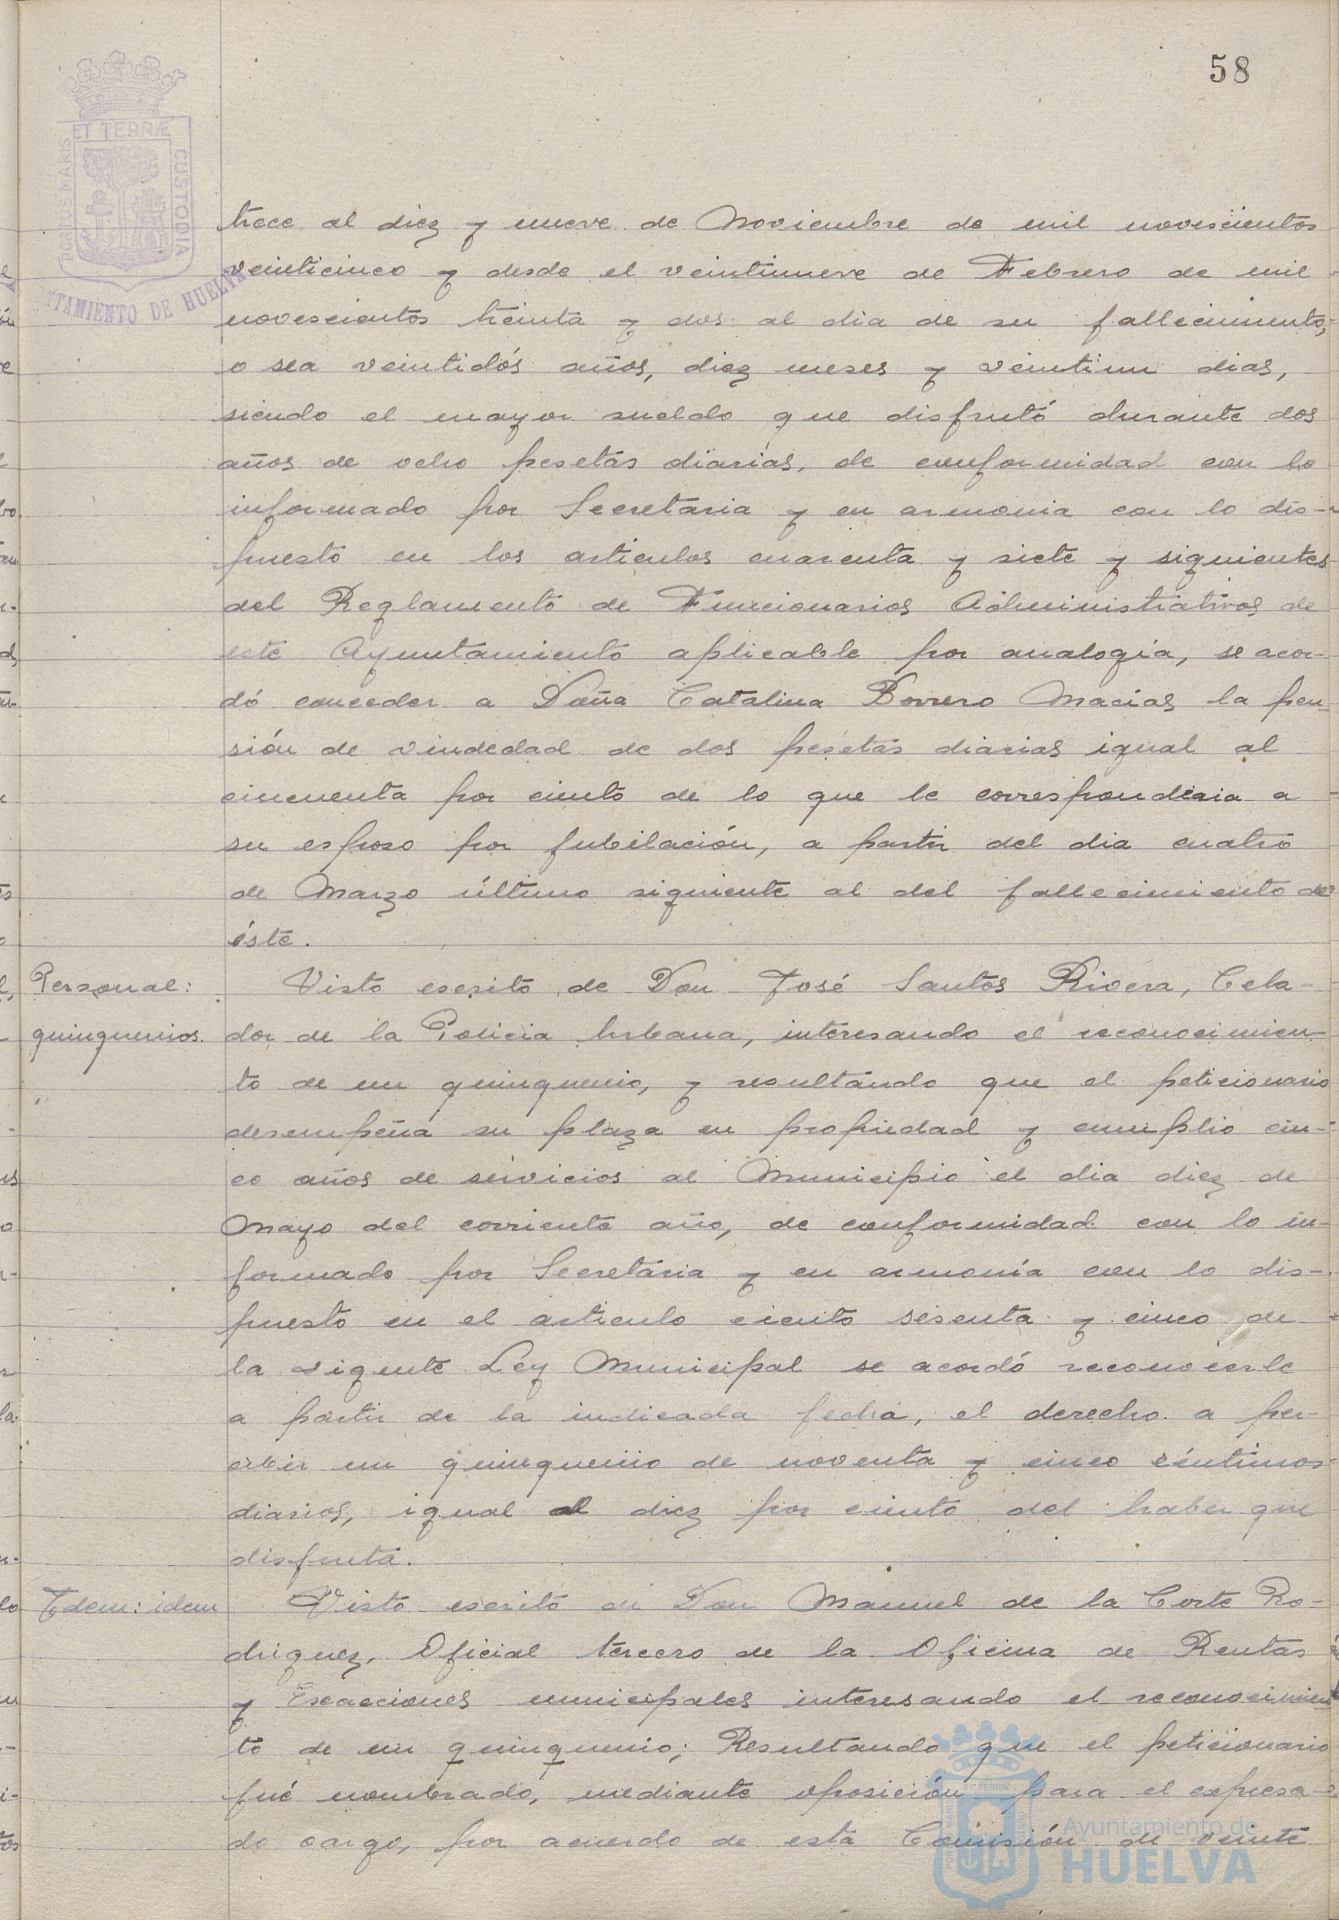 58
PORTUS MARIS ET TERRÆ CUSTODIA
AYUNTAMIENTO DE HUELVA
trece al diez y nueve de Noviembre de mil novescientos
veinticinco y desde el veintinueve de Febrero de mil
novescientos treinta y dos al dia de su fallecimiento,
o sea veintidós años, diez meses y veintiun dias,
siendo el mayor sueldo que disfrutó durante dos
años de ocho pesetas diarias, de conformidad con lo
informado por Secretaria y en armonia con lo dis-
puesto en los articulos cuarenta y siete y siguientes
del Reglamento de Funcionarios Administrativos de
este Ayuntamiento aplicable por analogia, se acor-
dó conceder a Doña Catalina Borrero Macias la pen-
sión de viudedad de dos pesetas diarias igual al
cincuenta por ciento de lo que le corresponderia a
su esposo por jubilación, a partir del dia cuatro
de Marzo último siguiente al del fallecimiento de
éste.
Personal:
quinquenios.
Visto escrito de Don José Santos Rivera, Cela-
dor de la Policia Urbana, interesando el reconocimien-
to de un quinquenio, y resultando que el peticionario
desempeña su plaza en propiedad y cumplio cin-
co años de servicios al Municipio el dia diez de
Mayo del corriente año, de conformidad con lo in-
formado por Secretaria y en armonía con lo dis-
puesto en el articulo ciento sesenta y cinco de
la vigente Ley Municipal se acordó reconocerle
a partir de la indicada fecha, el derecho a per-
cibir un quinquenio de noventa y cinco céntimos
diarios, igual al diez por ciento del haber que
disfruta.
Idem: idem
Visto escrito de Don Manuel de la Corte Ro-
driguez, Oficial tercero de la Oficina de Rentas
y Exacciones municipales interesando el reconocimien
to de un quinquenio; Resultando que el peticionario
fué nombrado, mediante oposición para el expresa-
do cargo, por acuerdo de esta Comisión de veinte
Ayuntamiento de
HUELVA